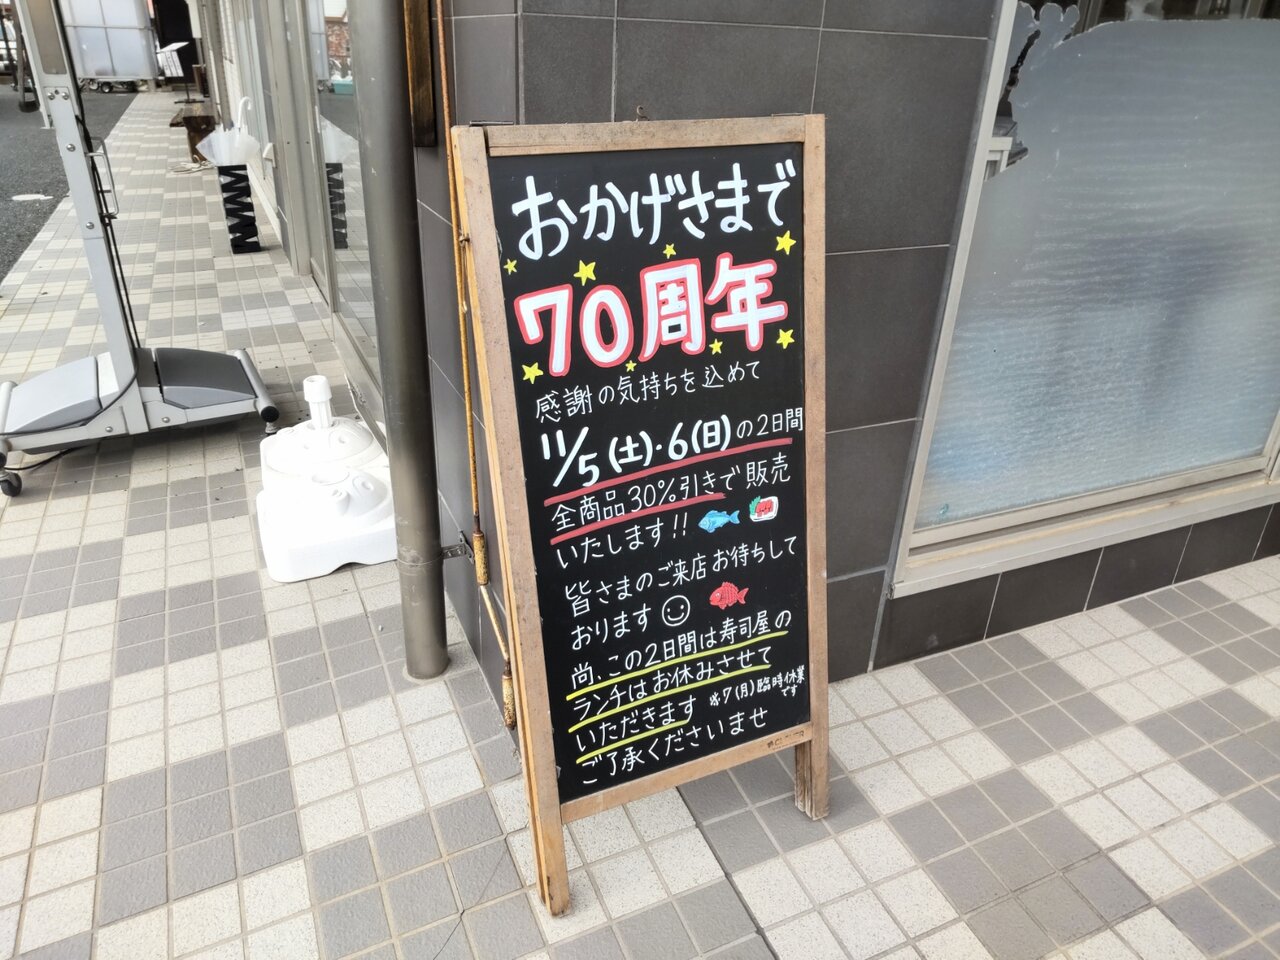 おかげさまで
70周年
感謝の気持ちを込めて
11/5(土)・6(日)の2日間
全商品30%引きで販売
いたします!!
皆さまのご来店お待ちして
おります
尚、この2日間は寿司屋の
ランチはお休みさせて
いただきます
※7(月)臨時休業
です
ご了承くださいませ